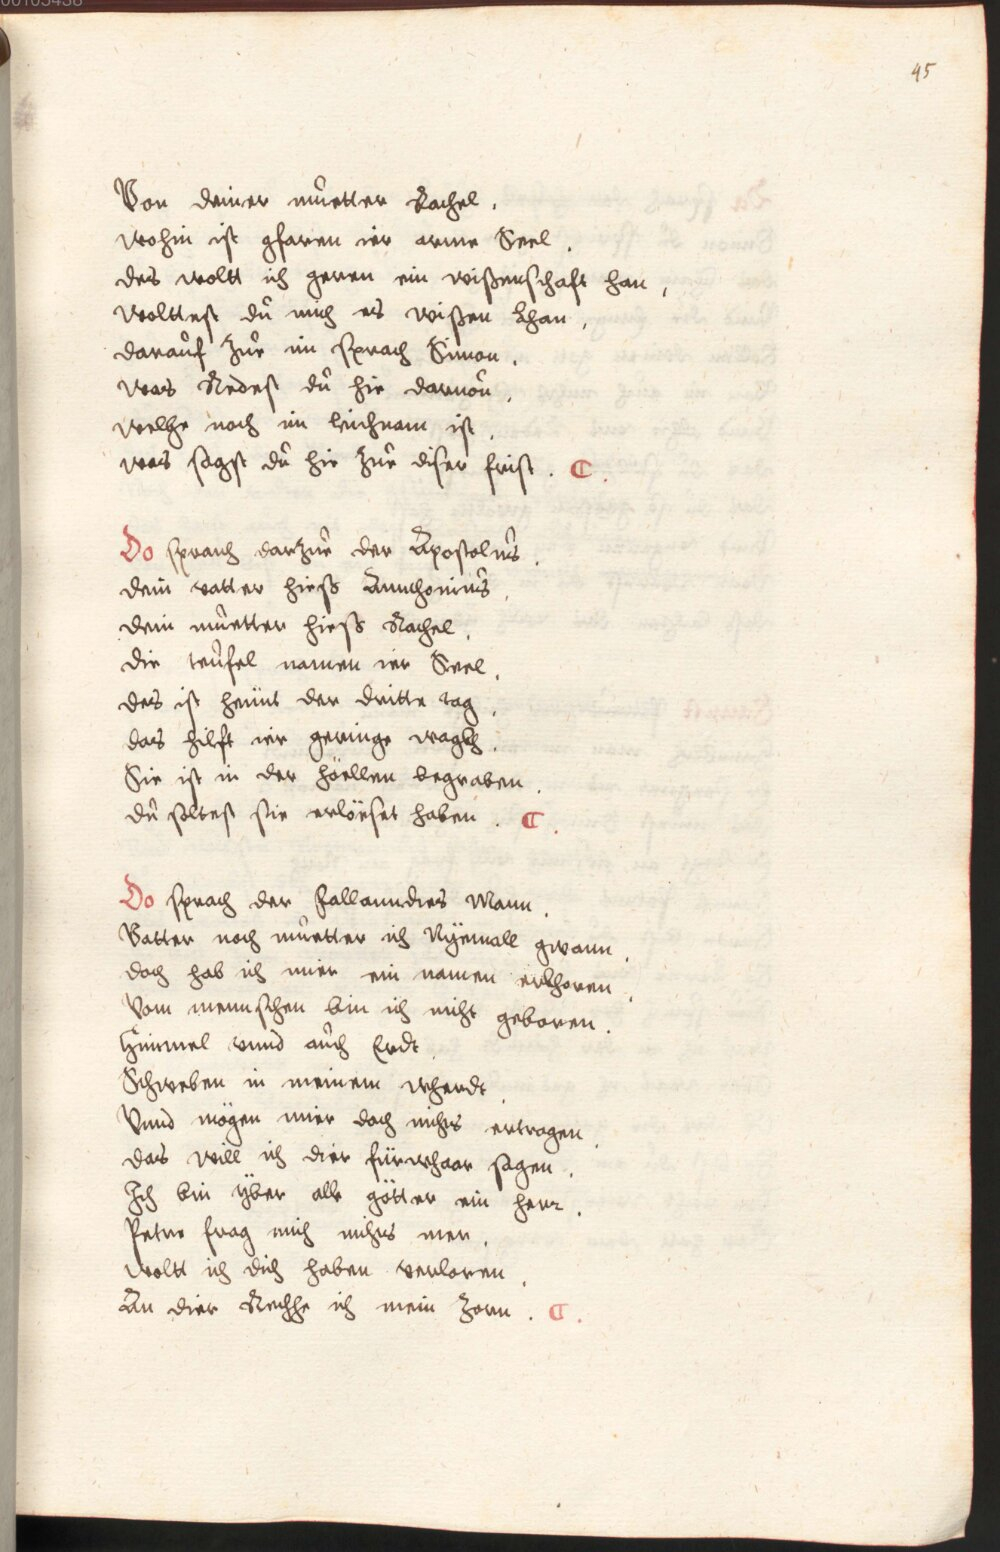 00105438
45
Von deiner muetter Rachel.
wohin ist gfaren ier arme Seel.
des woltt ich geren ein wißenschaft han,
wolttest dŭ mich es wißen Lhan,
daraŭf Zŭe im sprach Simon.
was Redest dŭ hie daruon,
welche noch im leichnam ist,
was sagst dŭ hie Zŭe diser frist. C.
Do sprach darzŭe der Apostolŭs.
dein vatter hieß Annthoniŭs,
dein mŭetter hieß Rachel,
die teŭfel namen ier Seel,
des ist heŭnt der dritte tag,
das hilft ier geringe wagkh.
Sie ist in der höellen begraben.
dŭ soltest sie erlöeset haben. C.
Do sprach der Fallanndies Mann.
Vatter noch mŭetter ich Nÿemall gwann.
doch hab ich mier ein namen erkhoren.
Vom mennschen bin ich nicht geboren.
Himmel vnnd aŭch Erdt.
Schweben in meinem wherdt.
Vnnd mögen mier doch nichts ertragen.
das will ich dier fürwhaar sagen.
Ich bin ÿber alle götter ein herr.
Petre frag mich nichts mer.
woltt ich dich haben verloren.
An dier Reche ich mein Zorn. C.